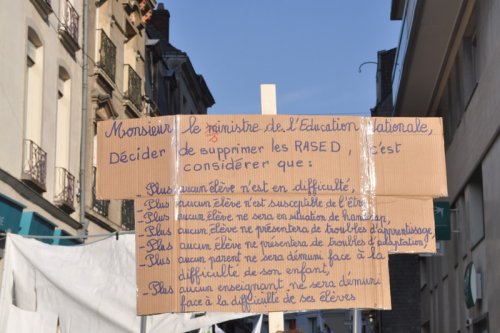 Monsieur le ministre de l'Education Nationale,
Décider de supprimer les RASED, c'est
considérer que :
- Plus aucun élève n'est en difficulté,
- Plus aucun élève n'est susceptible de l'être,
- Plus aucun élève ne sera en situation de handicap,
- Plus aucun élève ne présentera de troubles d'apprentissage
- Plus aucun élève ne présentera de troubles d'adaptation,
- Plus aucun parent ne sera démuni face à la
difficulté de son enfant,
- Plus aucun enseignant ne sera démuni
face à la difficulté de ses élèves